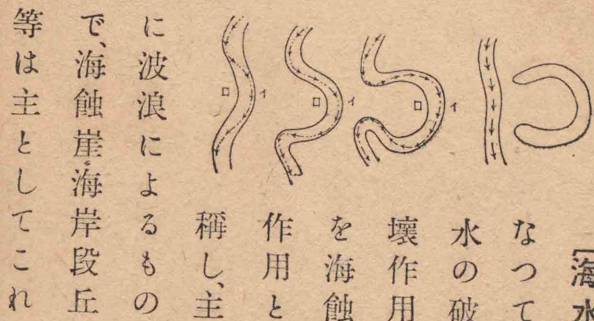 [海水
なつて
水の破
壊作用
を海蝕
作用と
稱し、主
に波浪によるもの
で、海蝕崖・海岸段丘
等は主としてこれ
イ
ロ
イ
ロ
イ
ロ